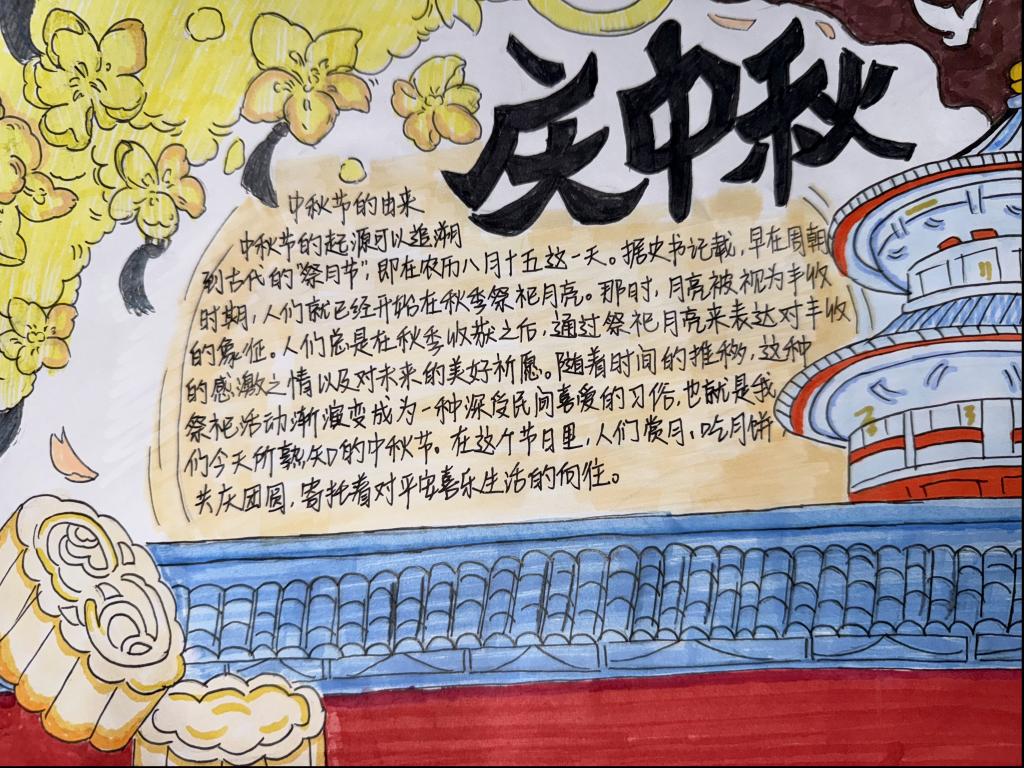 庆中秋
中秋节的由来
中秋节的起源可以追溯
到古代的"祭月节",即在农历八月十五这一天。据史书记载,早在周朝
时期,人们就已经开始在秋季祭祀月亮。那时,月亮被视为丰收
的象征。人们总是在秋季收获之后,通过祭祀月亮来表达对丰收
的感激之情以及对未来的美好祈愿。随着时间的推移,这种
祭祀活动渐演变成为一种深受民间喜爱的习俗,也就是我
们今天所熟知的中秋节。在这个节日里,人们赏月、吃月饼,
共庆团圆,寄托着对平安喜乐生活的向往。